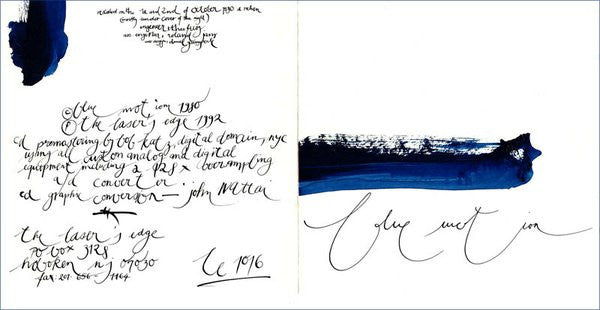 recorded on the 1st and 2nd of october 1980 in
(mostly under cover of the night)
© blue motion 1980
℗ the laser's edge 1992
cd premastering by bob katz, digital domain, nyc
using all custom analog and digital
equipment including a 128x oversampling
a/d converter
cd graphic conversion — john mattai
the laser's edge
po box 3128
hoboken nj 07030
fax: 201
le 1016
blue motion